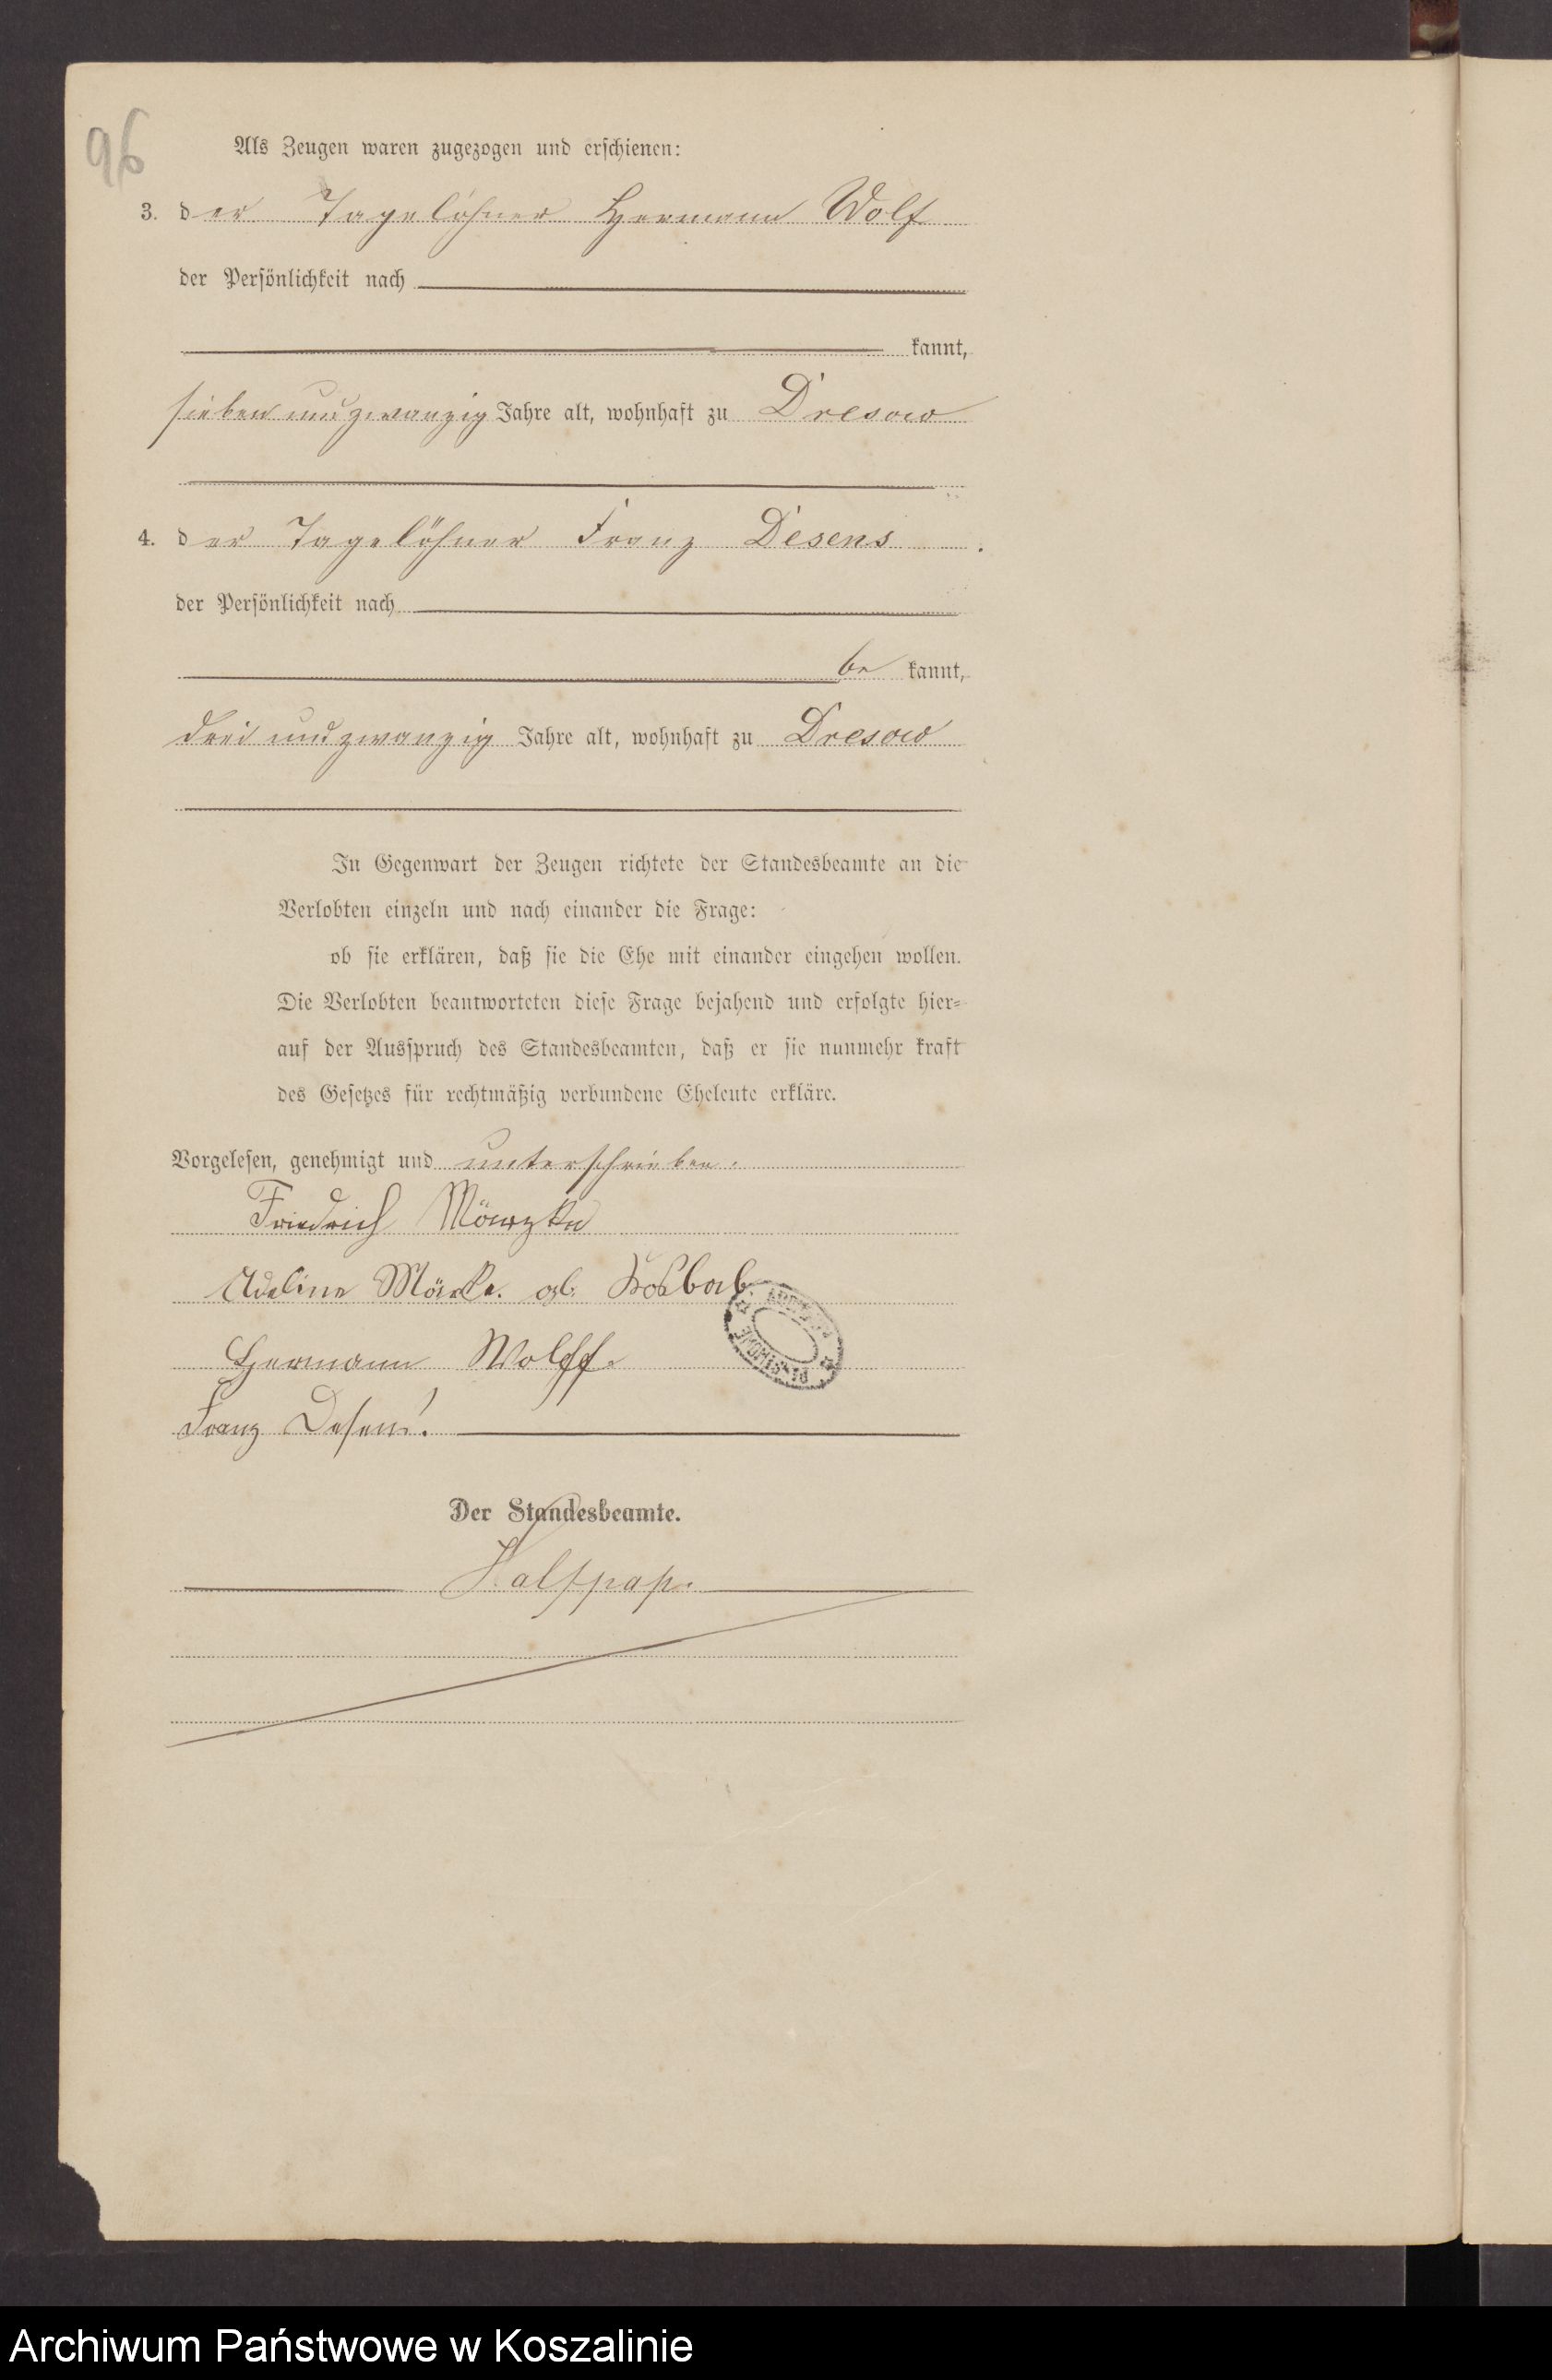 96
Als Zeugen waren zugezogen und erschienen:
3. der Tagelöhner Hermann Wolf
der Persönlichkeit nach
kannt,
sieben und zwanzig Jahre alt, wohnhaft zu Dresow
4. der Tagelöhner Franz Desens
der Persönlichkeit nach
be kannt,
drei und zwanzig Jahre alt, wohnhaft zu Dresow
In Gegenwart der Zeugen richtete der Standesbeamte an die
Verlobten einzeln und nach einander die Frage:
ob sie erklären, daß sie die Ehe mit einander eingehen wollen.
Die Verlobten beantworteten diese Frage bejahend und erfolgte hier=
auf der Ausspruch des Standesbeamten, daß er sie nunmehr kraft
des Gesetzes für rechtmäßig verbundene Eheleute erkläre.
Vorgelesen, genehmigt und unterschrieben.
Friedrich
Adeline geb.
Hermann Wolff.
Franz Desens.
Der Standesbeamte.
Archiwum Państwowe w Koszalinie